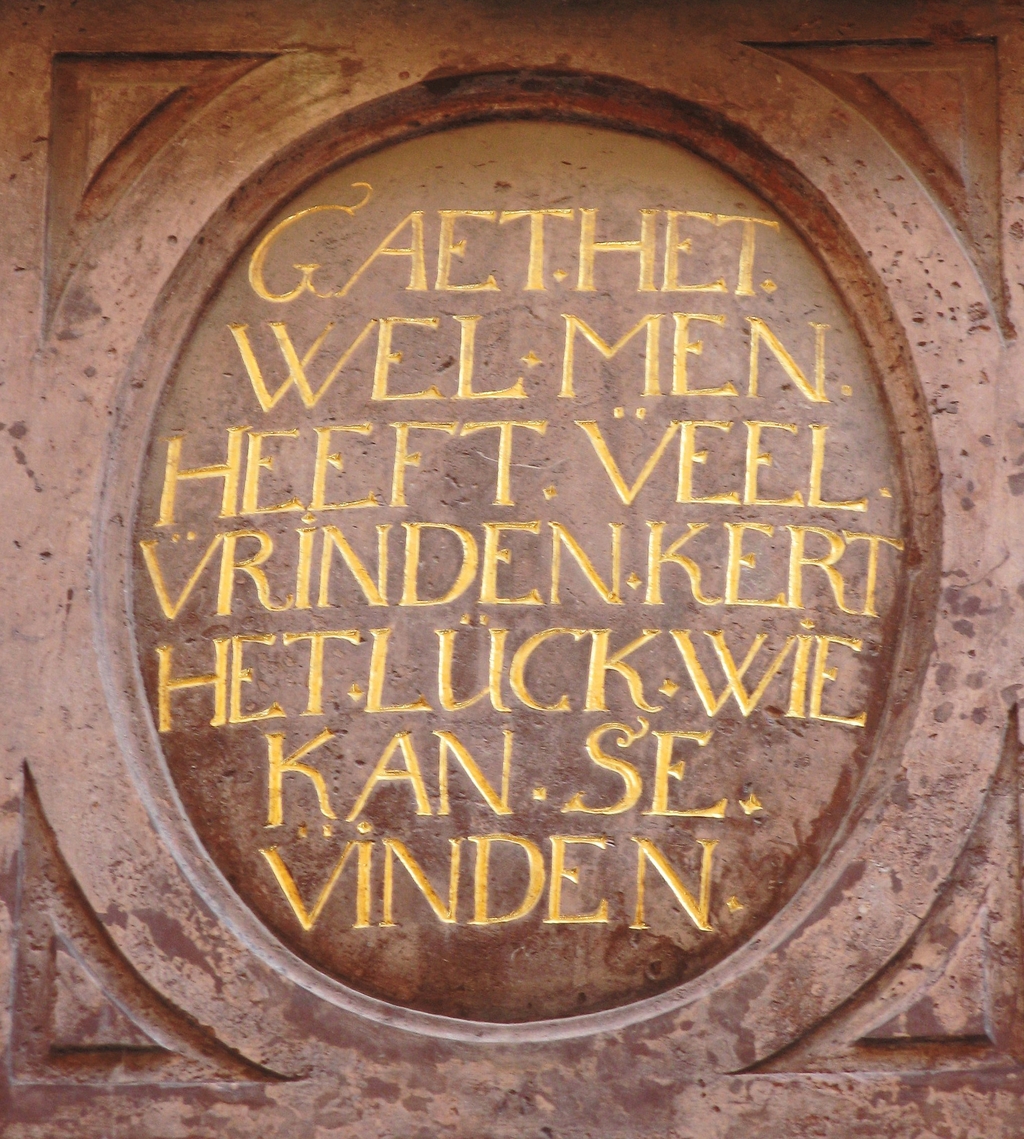 GAET·HET·
WEL·MEN·
HEEFT·V̈EEL·
V̈RİNDEN·KERT
HET·LÜCK·WİE
KAN·SE·
V̈İNDEN·